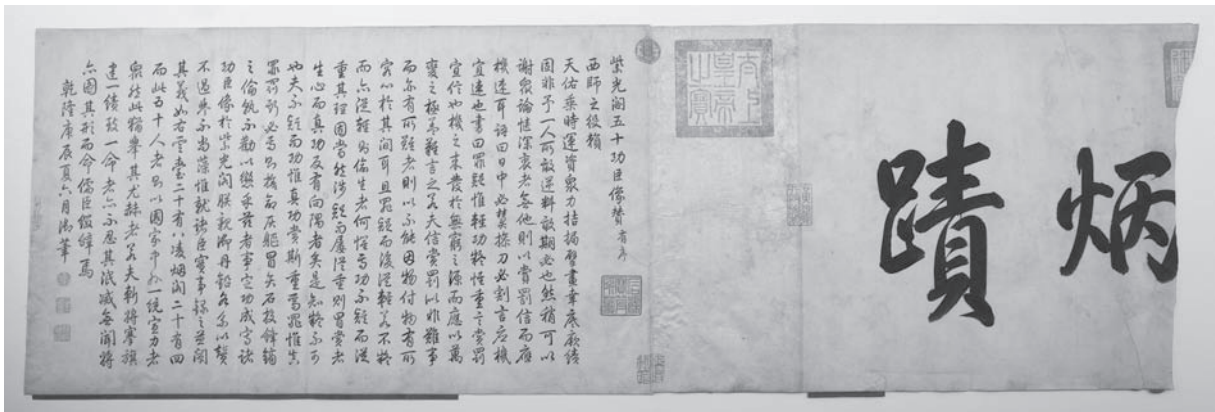 炳蹟
太上皇帝之寶
紫光閣五十功臣像贊有序
西師之役賴
天佑乘時運資衆力指揭擘畫幸底厥績
固非予一人所敢逆料敢期必也然稍可以
謝衆論愜深衷者無他則以賞罰信而應
機速耳語曰日中必熭操刀必割言應機
宜速也書曰罪疑惟輕功疑惟重言賞罰
宜信也機之来發於無窮之源而應以萬
變之極第難言之若夫信賞罰似非難事
而亦有所難者則以不能因物付物有所
容心於其間耳且罪疑而後從輕若不疑
而亦從輕則偷生者何怪焉功不疑而從
重其理固當然涉疑而屢從重則冒賞者
生心而真功反有向隅者矣是知疑不可
也夫不疑而功惟真功賞斯重焉罪惟真
罪罰斯必焉則捨命灰軀冒矢石投鋒鏑
之倫孰不勸以懲乎茲者事定功成寫諸
功臣像於紫光閣朕親御丹鉛各系以贊
不過舉不尚藻惟就諸臣實事録之並闡
其義如右雲臺二十有八凌烟閣二十有四
而此五十人者則以國家中外一統宣力者
衆然此猶舉其尤赫者若夫斬將搴旗
建一績致一命者亦不忍其泯滅無聞將
亦圖其形而命儒臣綴辭焉
乾隆庚辰夏六月御筆